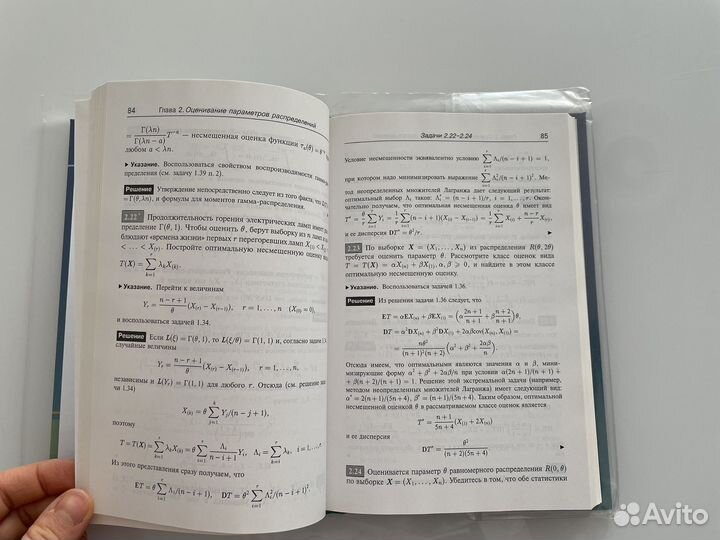 84 Глава 2. Оценивание параметров распределений
= Γ(λn)/Γ(λn−a) T^−a — несмещенная оценка функции τₐ(θ) = θ
любом a < λn.
▸ Указание. Воспользоваться свойством воспроизводимости гамма-
распределения (см. задачу 1.39 п. 2).
Решение Утверждение непосредственно следует из того факта, что
= Γ(θ, λn), и формулы для моментов гамма-распределения.
2.22 Продолжительность горения электрических ламп имеет рас-
пределение Γ(θ, 1). Чтобы оценить θ, берут выборку из n ламп и
блюдают «времена жизни» первых r перегоревших ламп X(1) <
< … < X(r). Постройте оптимальную несмещенную оценку
T(X) = ∑_{k=1}^{r} λₖX(k).
▸ Указание. Перейти к величинам
Yᵣ = (n − r + 1)/θ (X(r) − X(r−1)), r = 1, …, n (X(0) = 0),
и воспользоваться задачей 1.34.
Решение Если L(ξ) = Γ(θ, 1), то L(ξ/θ) = Γ(1, 1) и, согласно задаче
случайные величины
Yᵣ = (n − r + 1)/θ (X(r) − X(r−1)), r = 1, …, n,
независимы и L(Yᵣ) = Γ(1, 1) для любого r. Отсюда (см. решение
чи 1.34)
X(k) = θ ∑_{j=1}^{k} Yⱼ/(n − j + 1),
поэтому
T = T(X) = ∑_{k=1}^{r} λₖX(k) = θ ∑_{i=1}^{r} Λᵢ/(n − i + 1) Yᵢ, Λᵢ = ∑_{k=i}^{r} λₖ, i = 1, …, r.
Из этого представления сразу получаем, что
ET = θ ∑_{i=1}^{r} Λᵢ/(n − i + 1), DT = θ² ∑_{i=1}^{r} Λᵢ²/(n − i + 1)².
Задачи 2.22–2.24 85
Условие несмещенности эквивалентно условию ∑_{i=1}^{r} Λᵢ/(n − i + 1) = 1,
при котором надо минимизировать выражение ∑_{i=1}^{r} Λᵢ²/(n − i + 1)². Ме-
тод неопределенных множителей Лагранжа дает следующий результат:
оптимальный выбор Λᵢ таков: Λᵢ* = (n − i + 1)/r, i = 1, …, r. Окон-
чательно получаем, что оптимальная несмещенная оценка θ имеет вид
T* = θ/r ∑_{i=1}^{r} Yᵢ = 1/r ∑_{i=1}^{r} (n − i + 1)(X(i) − X(i−1)) = 1/r ∑_{i=1}^{r} X(i) + (n − r)/r X(r),
и ее дисперсия DT* = θ²/r. ▸
2.23 По выборке X = (X₁, …, Xₙ) из распределения R(θ, 2θ)
требуется оценить параметр θ. Рассмотрите класс оценок вида
T = T(X) = αX(n) + βX(1), α, β ⩾ 0, и найдите в этом классе
оптимальную несмещенную оценку.
▸ Указание. Воспользоваться задачей 1.36.
Решение Из решения задачи 1.36 следует, что
ET = αEX(n) + βEX(1) = (α (2n + 1)/(n + 1) + β (n + 2)/(n + 1)) θ,
DT = α²DX(n) + β²DX(1) + 2αβcov(X(n), X(1)) =
= nθ²/((n + 1)²(n + 2)) (α² + β² + 2αβ/n).
Отсюда имеем, что оптимальными являются значения α и β, мини-
мизирующие форму α² + β² + 2αβ/n при условии α(2n + 1)/(n + 1) +
+ β(n + 2)/(n + 1) = 1. Решение этой экстремальной задачи (например,
методом неопределенных множителей Лагранжа) имеет следующий вид:
α* = 2(n + 1)/(5n + 4), β* = (n + 1)/(5n + 4). Таким образом, оптимальной
несмещенной оценкой θ в рассматриваемом классе оценок является
T* = (n + 1)/(5n + 4) (X(1) + 2X(n))
и ее дисперсия
DT* = θ²/((n + 2)(5n + 4)). ▸
2.24 Оценивается параметр θ равномерного распределения R(0, θ)
по выборке X = (X₁, …, Xₙ). Убедитесь в том, что обе статистики
Avito